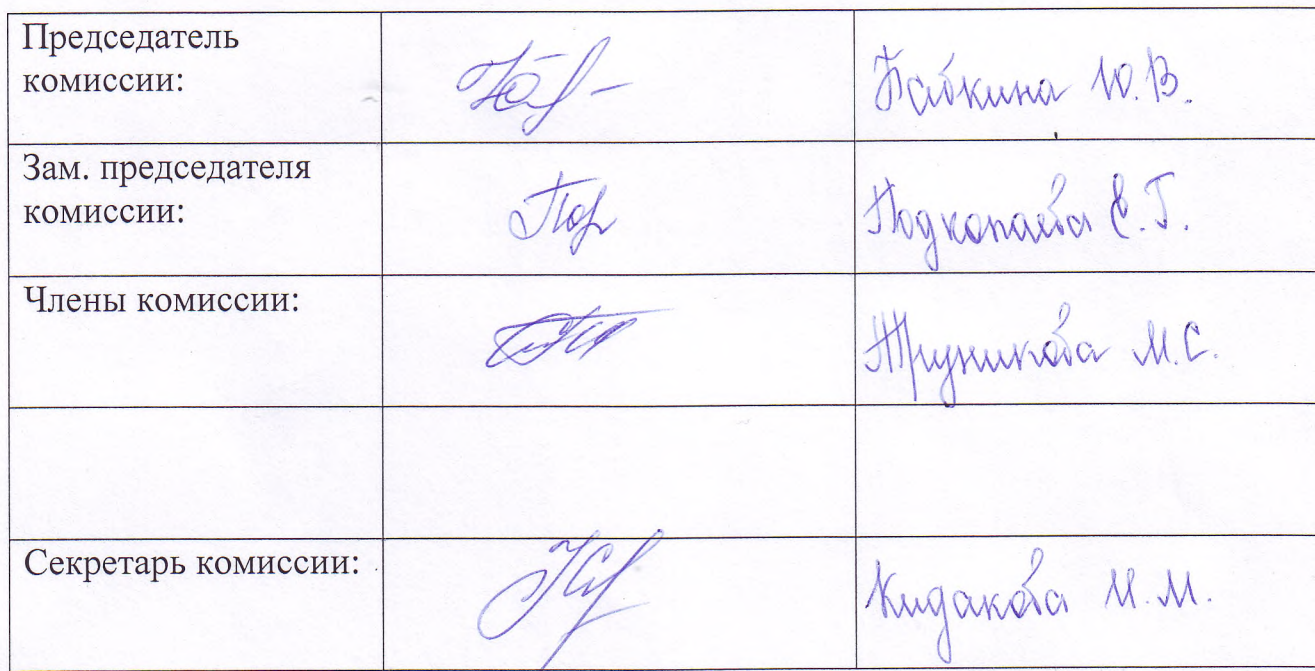 Председатель
комиссии:
Бабкина Ю.В.
Зам. председателя
комиссии:
Подкопаева Е.Г.
Члены комиссии:
Труникова М.С.
Секретарь комиссии:
Кидакова И.М.